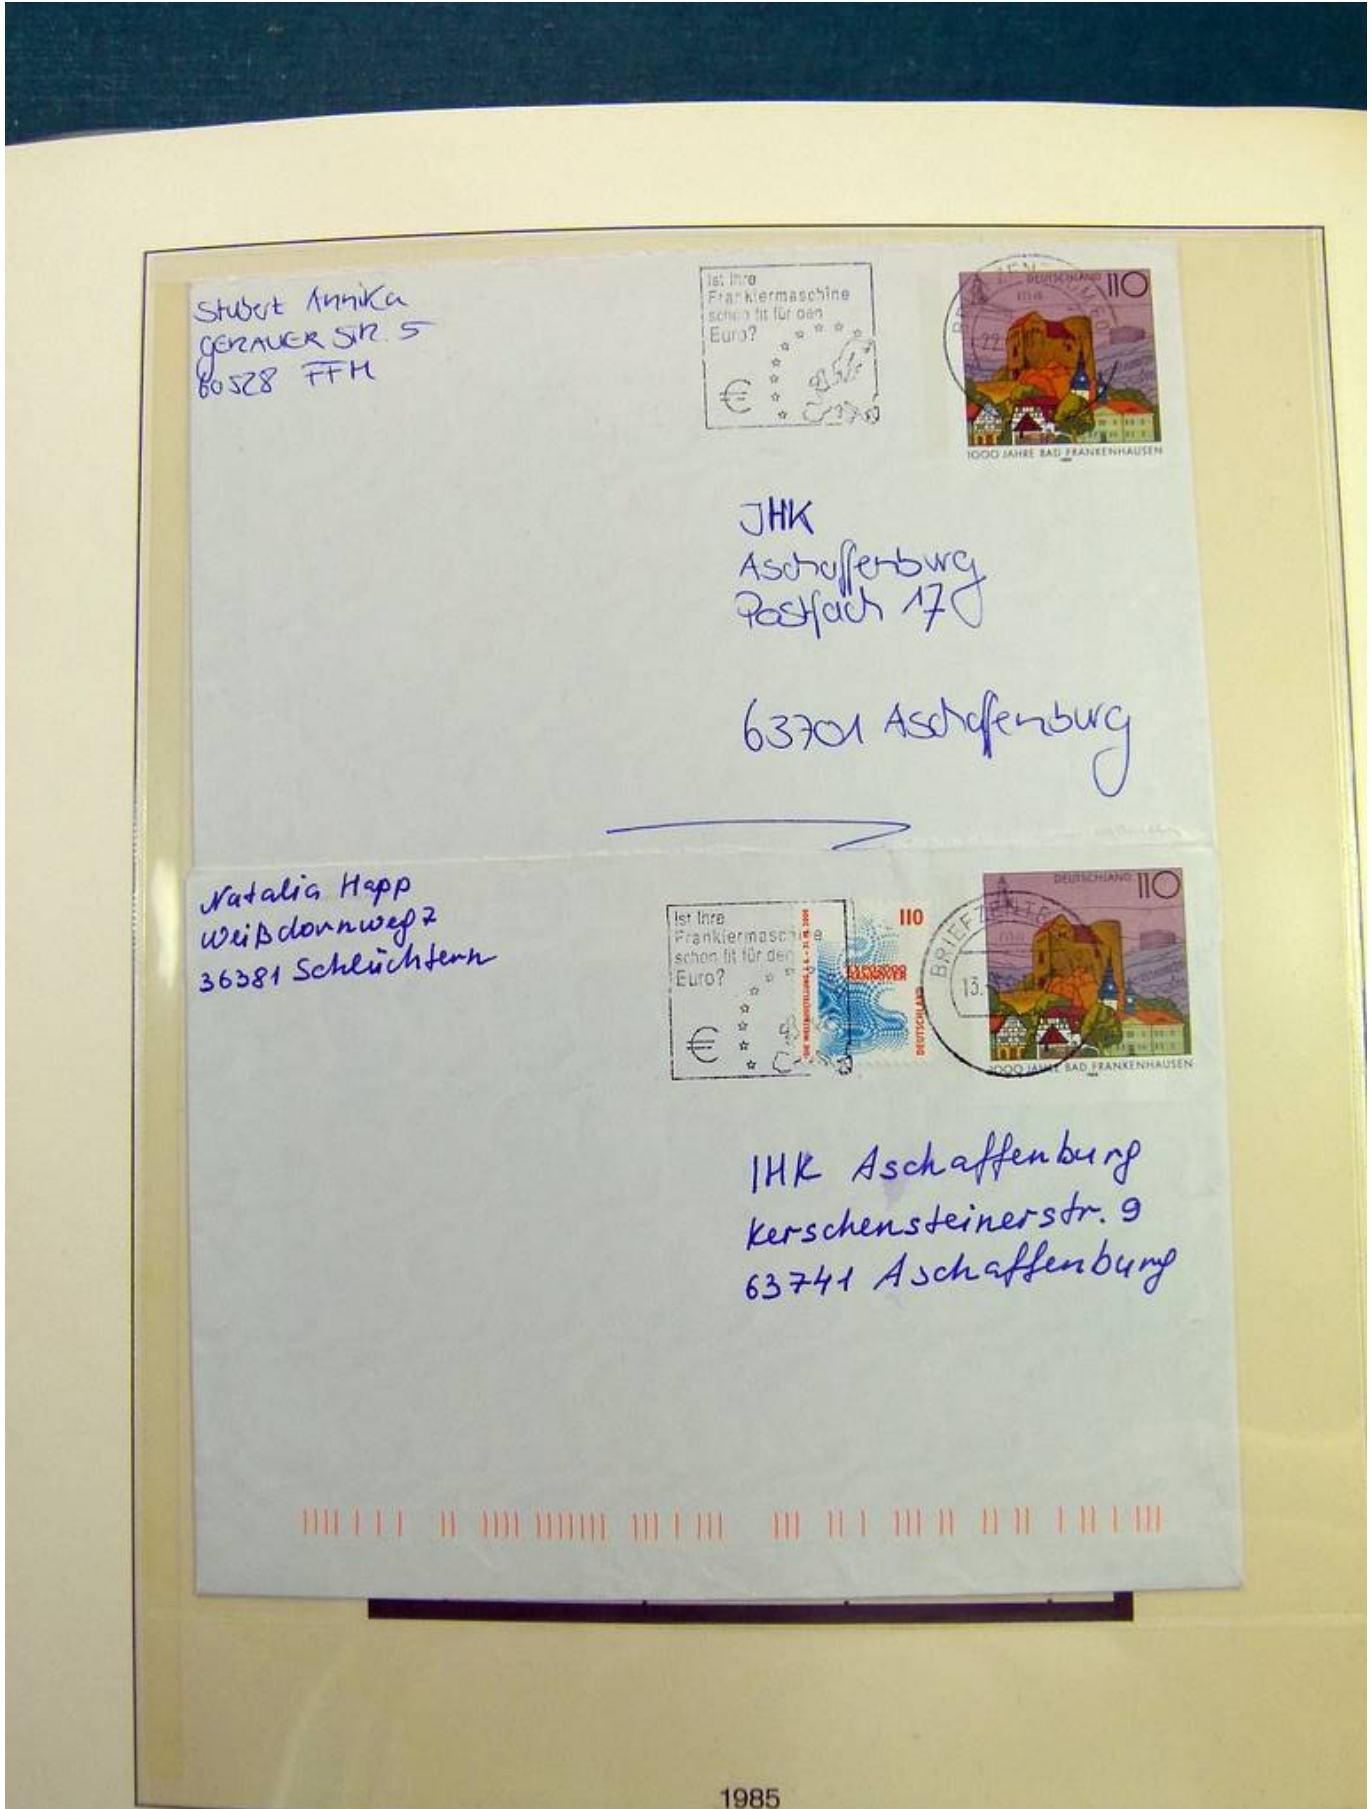 Stubert Annika
GERAUER STR. 5
60528 FFM
Ist Ihre
Frankiermaschine
schon fit für den
Euro?
€
DEUTSCHLAND 110
22
1000 JAHRE BAD FRANKENHAUSEN
JHK
Aschaffenburg
Postfach 17
63701 Aschaffenburg
Natalia Happ
Weißdornweg 7
36381 Schlüchtern
Ist Ihre
Frankiermaschine
schon fit für den
Euro?
€
110
EXPO2000
HANNOVER
DEUTSCHLAND
BRIEFZENTR
13.
DEUTSCHLAND 110
1000 JAHRE BAD FRANKENHAUSEN
IHK Aschaffenburg
Kerschensteinerstr. 9
63741 Aschaffenburg
1985